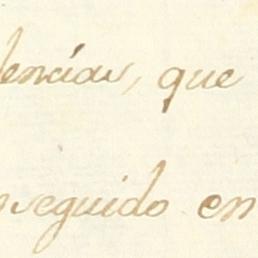 dencias, que
nseguido en